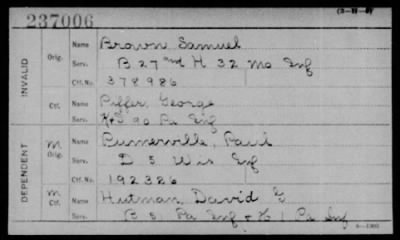 237006
INVALID
Orig.
Name Brown, Samuel
Serv. B 27 H 32 Mo Inf
Ctf. No. 378986
Ctf.
Name Piffer, George
Serv. 90 Pa Inf
DEPENDENT
M
Orig.
Name Pumerville, Paul
Serv. D 5 Wis Inf
Ctf. No. 192386
M
Ctf.
Name Hutman, David G
Serv. B 51 Pa Inf + K 1 Pa Inf